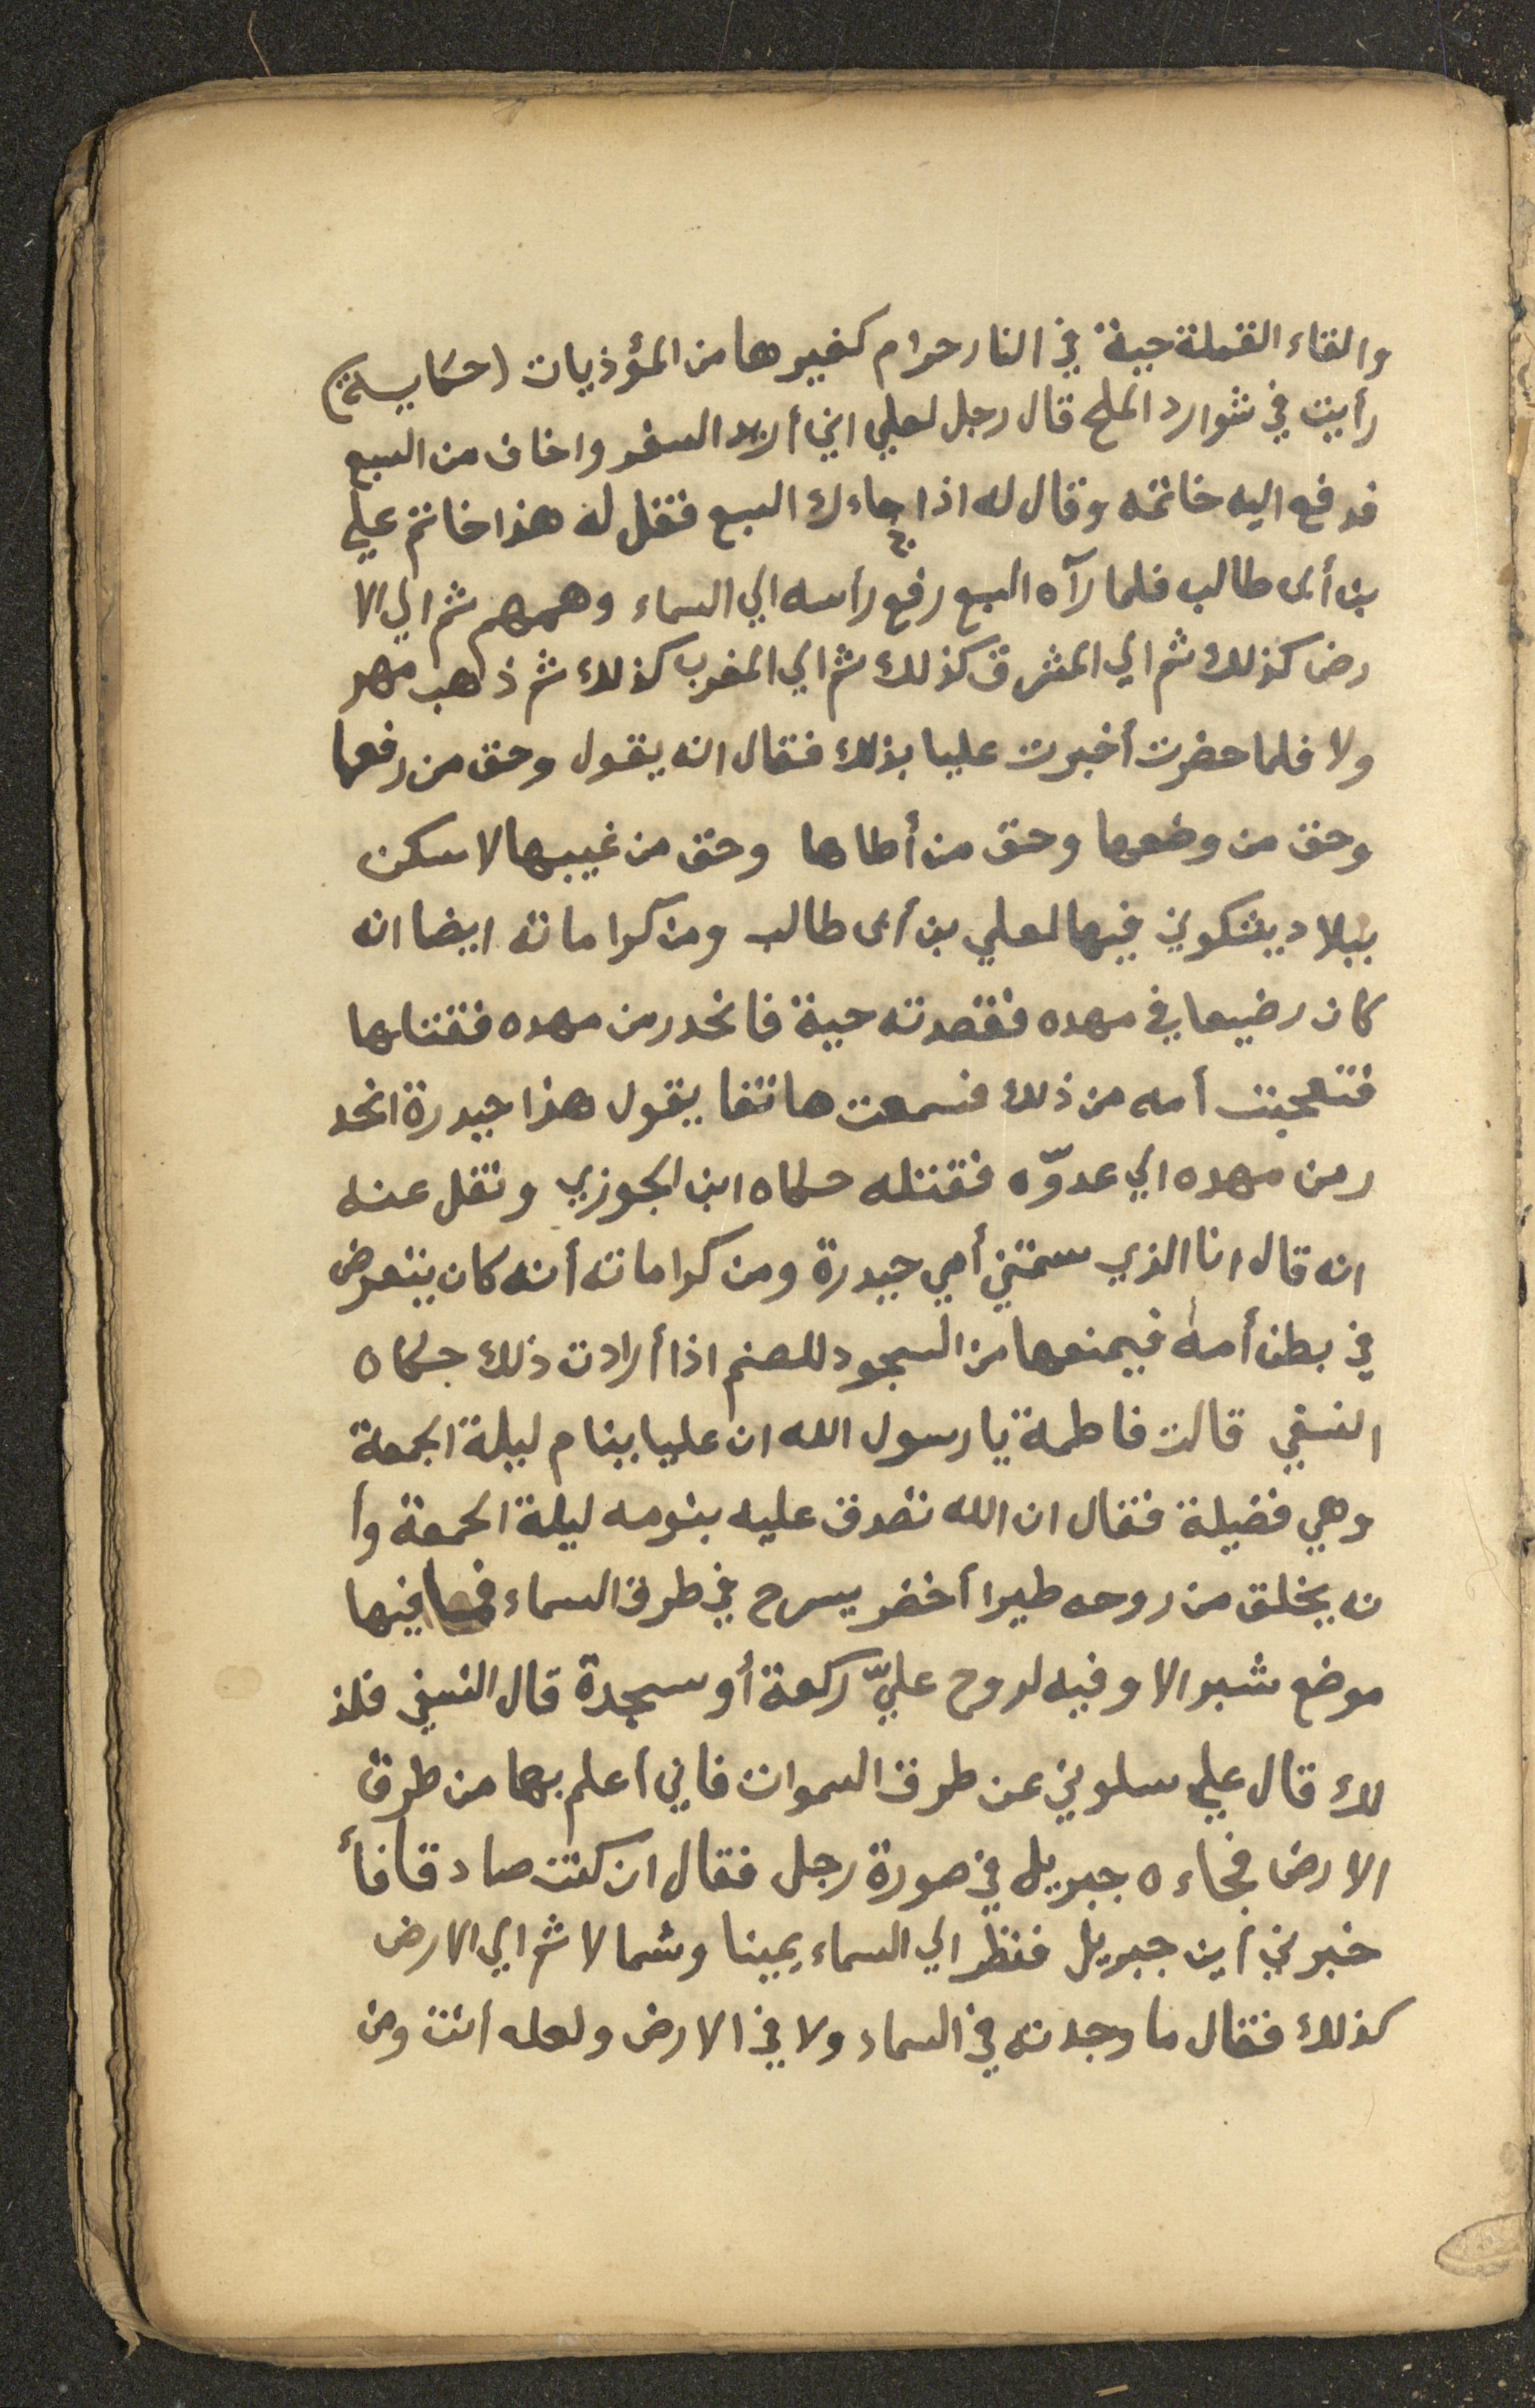 والقاء القملة حية في النار حرام كغيرها من المؤذيات (حكاية)
رأيت في شوارد الملح قال رجل لعلي اني أريد السفر واخاف من السبع
فدفع اليه خاتمه وقال له اذا جاءك السبع فقل له هذا خاتم علي
بن أبى طالب فلما رآه السبع رفع رأسه الي السماء وهمهم ثم الي الا
رض كذلك ثم الي المشرق كذلك ثم الي المغرب كذلك ثم ذهب مهر
ولا فلما حضرت أخبرت عليا بذلك فقال انه يقول وحق من رفعها
وحق من وضعها وحق من أطاها وحق من غيبها لا اسكن
ببلاد يشكوني فيها لعلي بن أبى طالب ومن كراماته ايضا انه
كان رضيعا في مهده فقصدته حية فانحدر من مهده فقتلها
فتعجبت أمه من ذلك فسمعت هاتفا يقول هذا حيدرة انحد
ر من مهده الي عدوّه فقتله حكاه ابن الجوزي ونقل عنه
انه قال انا الذي سمتني أمي حيدرة ومن كراماته أنه كان يتعرض
في بطن أمه فيمنعها من السجود للصنم اذا أرادت ذلك حكاه
النسفي قالت فاطمة يا رسول الله ان عليا ينام ليلة الجمعة
وهي فضيلة فقال ان الله تصدق عليه بنومه ليلة الجمعة وأ
نه يخلق من روحه طيرا أخضر يسرح في طرق السماء فما فيها
موضع شبر الا وفيه لروح عليّ ركعة أو سجدة قال النسفي فلذ
لك قال علي سلوني عن طرق السموات فاني أعلم بها من طرق
الارض فجاءه جبريل في صورة رجل فقال ان كنت صادقا فأ
خبرني أين جبريل فنظر الي السماء يمينا وشمالا ثم الي الارض
كذلك فقال ما وجدته في السماء ولا في الارض ولعله أنت ومن